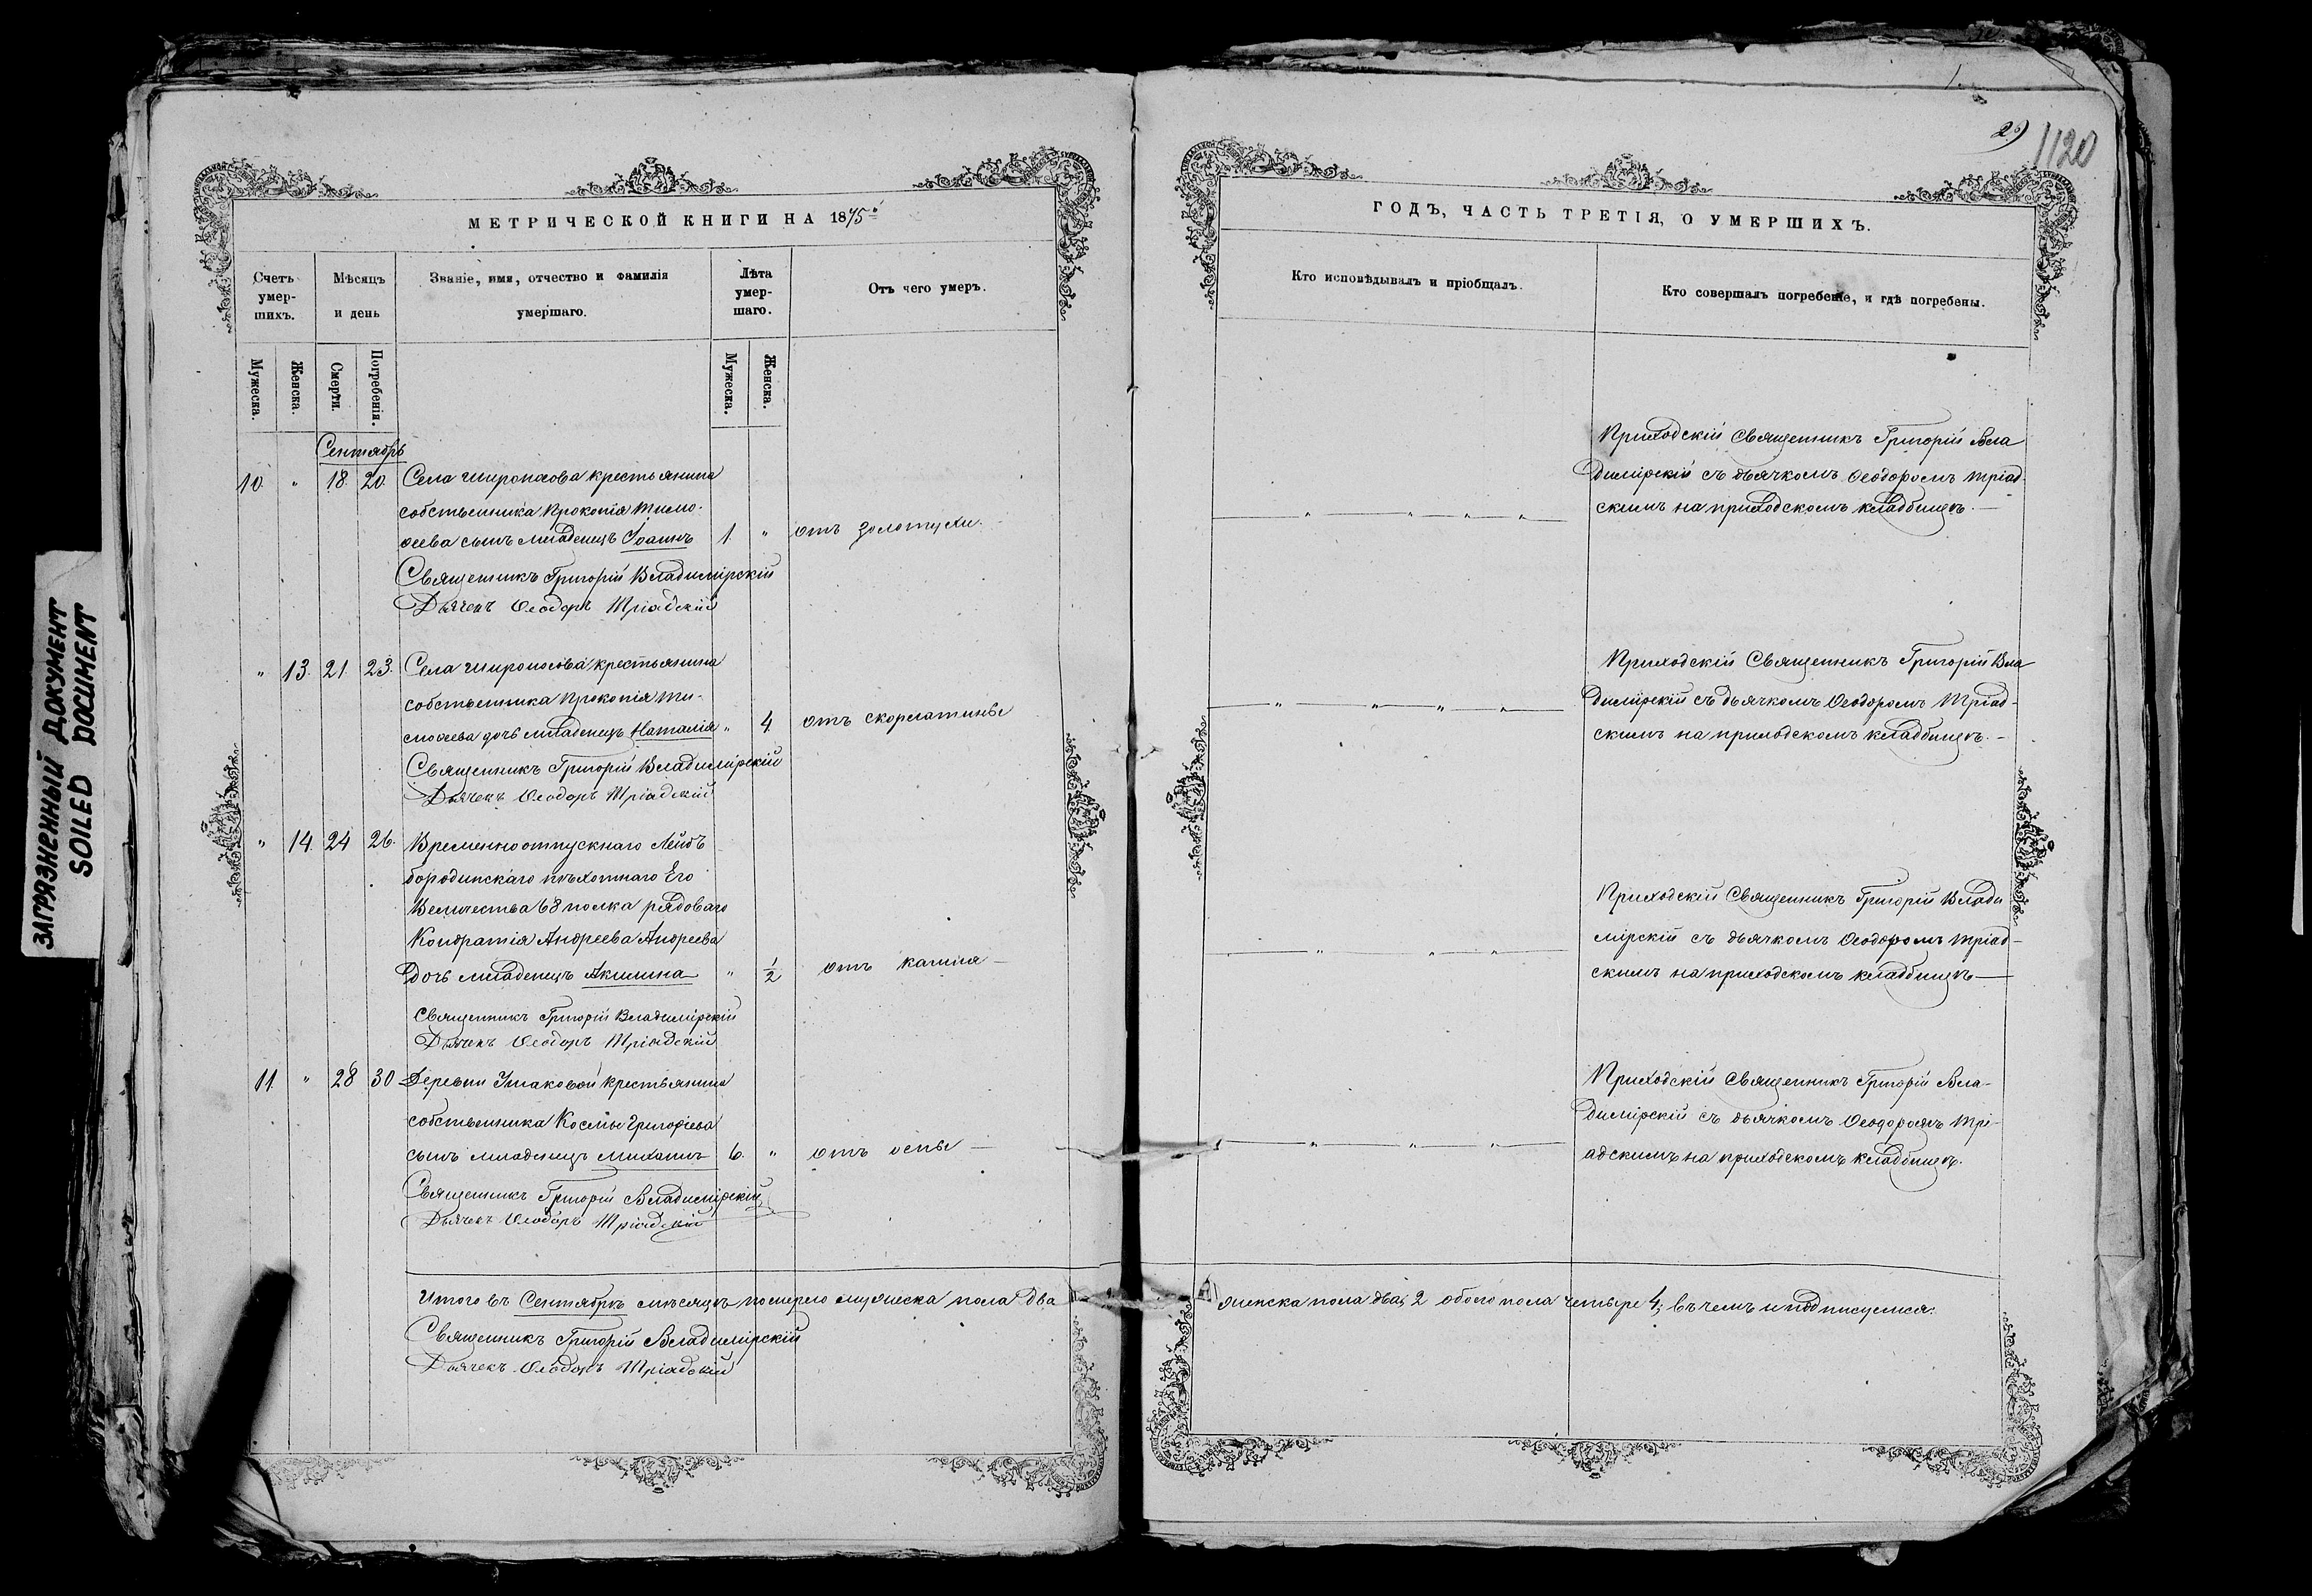 29
1120
ЗАГРЯЗНЕННЫЙ ДОКУМЕНТ
SOILED DOCUMENT
МЕТРИЧЕСКОЙ КНИГИ НА 1875й
Счетъ умер-шихъ.
Мѣсяцъ и день
Званіе, имя, отчество и фамилія умершаго.
Лѣта умер-шаго.
Отъ чего умеръ.
Мужеска.
Женска.
Смерти.
Погребенія.
Мужеска.
Женска.
Сентябрь
10 " 18. 20. Села Широносова крестьянина
собственника Прокопія Тимо-
ѳеева сынъ младенецъ Іоаннъ 1. " отъ золотухи.
Священникъ Григорій Владимірскій
Дьячекъ Ѳеодоръ Тріадскій
" 13. 21. 23. Села Широносова крестьянина
собственника Прокопія Ти-
моѳеева дочь младенецъ Наталія " 4. отъ скорлатины
Священникъ Григорій Владимірскій
Дьячекъ Ѳеодоръ Тріадскій
" 14. 24 26. Временноотпускнаго Лейбъ
бородинскаго пѣхотнаго Его
Величества 68 полка рядоваго
Кондратія Андреева Андреева
дочь младенецъ Акилина " 1/2 отъ кашля
Священникъ Григорій Владимірскій
Дьячекъ Ѳеодоръ Тріадскій
11. " 28 30 Деревни Ушаковой крестьянина
собственника Космы Григорьева
сынъ младенецъ Михаилъ 6. " отъ оспы
Священникъ Григорій Владимірскій
Дьячекъ Ѳеодоръ Тріадскій
Итого въ Сентябрѣ мѣсяцѣ померло мужеска пола два
Священникъ Григорій Владимірскій
Дьячекъ Ѳеодоръ Тріадскій
ГОДЪ, ЧАСТЬ ТРЕТІЯ, О УМЕРШИХЪ.
Кто исповѣдывалъ и пріобщалъ.
Кто совершалъ погребеніе, и гдѣ погребены.
Приходскій Священникъ Григорій Вла
димірскій съ дьячкомъ Ѳеодоромъ Тріад-
скимъ на приходскомъ кладбищѣ.
Приходскій Священникъ Григорій Вла
димірскій съ дьячкомъ Ѳеодоромъ Тріад-
скимъ на приходскомъ кладбищѣ.
Приходскій Священникъ Григорій Влади
мірскій съ дьячкомъ Ѳеодоромъ Тріад-
скимъ на приходскомъ кладбищѣ
Приходскій Священникъ Григорій Вла-
димірскій съ дьячкомъ Ѳеодоромъ Трі-
адскимъ на приходскомъ кладбищѣ.
женска пола два; 2 обоего пола четыре 4; въ чемъ и подписуемся.